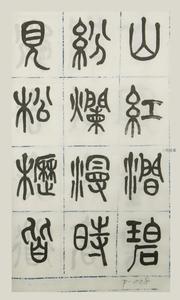 山紅澗碧
紛爛漫時
見松櫪皆